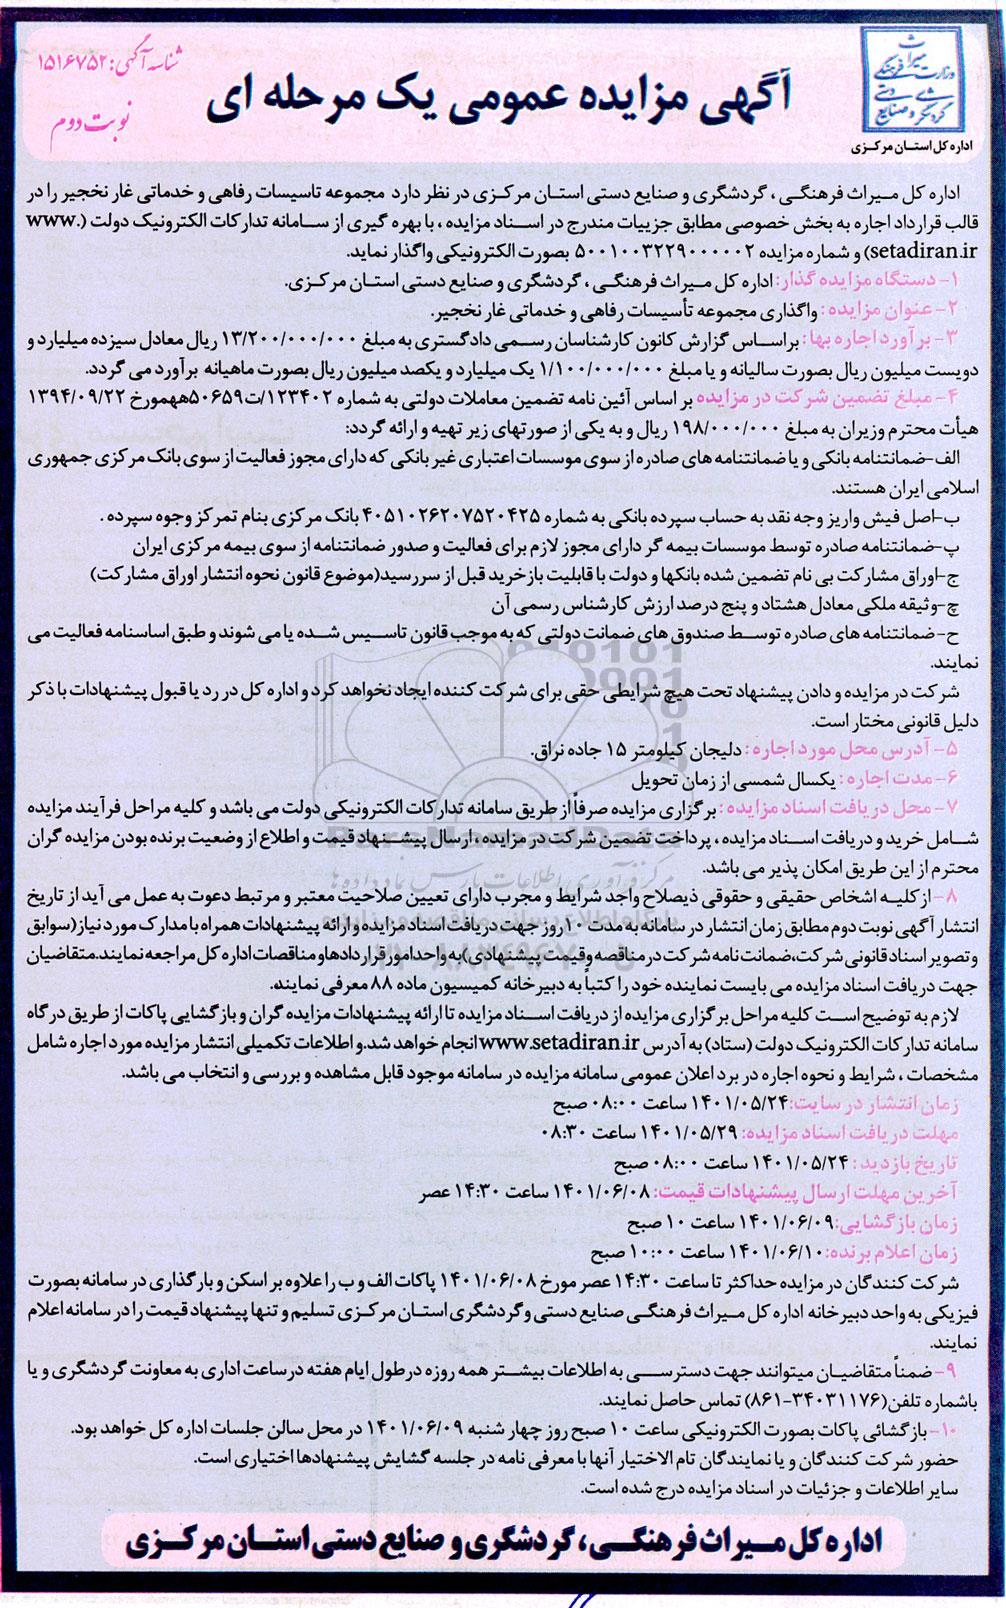 وزارت میراث فرهنگی
گردشگری و صنایع دستی
اداره کل استان مرکزی
شناسه آگهی: ۱۵۱۶۷۵۲
نوبت دوم
آگهی مزایده عمومی یک مرحله ای
اداره کل میراث فرهنگی ، گردشگری و صنایع دستی استان مرکزی در نظر دارد مجموعه تاسیسات رفاهی و خدماتی غار نخجیر را در
قالب قرارداد اجاره به بخش خصوصی مطابق جزییات مندرج در اسناد مزایده ، با بهره گیری از سامانه تدارکات الکترونیک دولت (www.
setadiran.ir) و شماره مزایده ۵۰۰۱۰۰۳۲۲۹۰۰۰۰۰۲ بصورت الکترونیکی واگذار نماید.
۱- دستگاه مزایده گذار: اداره کل میراث فرهنگی ، گردشگری و صنایع دستی استان مرکزی.
۲- عنوان مزایده : واگذاری مجموعه تأسیسات رفاهی و خدماتی غار نخجیر.
۳- برآورد اجاره بها : براساس گزارش کانون کارشناسان رسمی دادگستری به مبلغ ۱۳/۲۰۰/۰۰۰/۰۰۰ ریال معادل سیزده میلیارد و
دویست میلیون ریال بصورت سالیانه و یا مبلغ ۱/۱۰۰/۰۰۰/۰۰۰ یک میلیارد و یکصد میلیون ریال بصورت ماهیانه برآورد می گردد.
۴- مبلغ تضمین شرکت در مزایده بر اساس آئین نامه تضمین معاملات دولتی به شماره ۱۲۳۴۰۲/ت۵۰۶۵۹ههمورخ ۱۳۹۴/۰۹/۲۲
هیأت محترم وزیران به مبلغ ۱۹۸/۰۰۰/۰۰۰ ریال و به یکی از صورتهای زیر تهیه و ارائه گردد:
الف-ضمانتنامه بانکی و یا ضمانتنامه های صادره از سوی موسسات اعتباری غیر بانکی که دارای مجوز فعالیت از سوی بانک مرکزی جمهوری
اسلامی ایران هستند.
ب-اصل فیش واریز وجه نقد به حساب سپرده بانکی به شماره ۴۰۵۱۰۲۶۲۰۷۵۲۰۴۲۵ بانک مرکزی بنام تمرکز وجوه سپرده .
پ-ضمانتنامه صادره توسط موسسات بیمه گر دارای مجوز لازم برای فعالیت و صدور ضمانتنامه از سوی بیمه مرکزی ایران
ج-اوراق مشارکت بی نام تضمین شده بانکها و دولت با قابلیت بازخرید قبل از سررسید(موضوع قانون نحوه انتشار اوراق مشارکت)
چ-وثیقه ملکی معادل هشتاد و پنج درصد ارزش کارشناس رسمی آن
ح- ضمانتنامه های صادره توسط صندوق های ضمانت دولتی که به موجب قانون تاسیس شده یا می شوند و طبق اساسنامه فعالیت می
نمایند.
شرکت در مزایده و دادن پیشنهاد تحت هیچ شرایطی حقی برای شرکت کننده ایجاد نخواهد کرد و اداره کل در رد یا قبول پیشنهادات با ذکر
دلیل قانونی مختار است.
۵- آدرس محل مورد اجاره : دلیجان کیلومتر ۱۵ جاده نراق.
۶- مدت اجاره : یکسال شمسی از زمان تحویل
۷- محل دریافت اسناد مزایده : برگزاری مزایده صرفاً از طریق سامانه تدارکات الکترونیکی دولت می باشد و کلیه مراحل فرآیند مزایده
شامل خرید و دریافت اسناد مزایده ، پرداخت تضمین شرکت در مزایده ، ارسال پیشنهاد قیمت و اطلاع از وضعیت برنده بودن مزایده گران
محترم از این طریق امکان پذیر می باشد.
۸- از کلیه اشخاص حقیقی و حقوقی ذیصلاح واجد شرایط و مجرب دارای تعیین صلاحیت معتبر و مرتبط دعوت به عمل می آید از تاریخ
انتشار آگهی نوبت دوم مطابق زمان انتشار در سامانه به مدت ۱۰ روز جهت دریافت اسناد مزایده و ارائه پیشنهادات همراه با مدارک مورد نیاز(سوابق
و تصویر اسناد قانونی شرکت،ضمانت نامه شرکت در مناقصه و قیمت پیشنهادی)به واحد امور قراردادها و مناقصات اداره کل مراجعه نمایند.متقاضیان
جهت دریافت اسناد مزایده می بایست نماینده خود را کتباً به دبیرخانه کمیسیون ماده ۸۸ معرفی نمایند.
لازم به توضیح است کلیه مراحل برگزاری مزایده از دریافت اسناد مزایده تا ارائه پیشنهادات مزایده گران و بازگشایی پاکات از طریق درگاه
سامانه تدارکات الکترونیک دولت (ستاد) به آدرس www.setadiran.ir انجام خواهد شد.و اطلاعات تکمیلی انتشار مزایده مورد اجاره شامل
مشخصات ، شرایط و نحوه اجاره در برد اعلان عمومی سامانه مزایده در سامانه موجود قابل مشاهده و بررسی و انتخاب می باشد.
زمان انتشار در سایت: ۱۴۰۱/۰۵/۲۴ ساعت ۰۸:۰۰ صبح
مهلت دریافت اسناد مزایده: ۱۴۰۱/۰۵/۲۹ ساعت ۰۸:۳۰
تاریخ بازدید : ۱۴۰۱/۰۵/۲۴ ساعت ۰۸:۰۰ صبح
آخرین مهلت ارسال پیشنهادات قیمت: ۱۴۰۱/۰۶/۰۸ ساعت ۱۴:۳۰ عصر
زمان بازگشایی: ۱۴۰۱/۰۶/۰۹ ساعت ۱۰ صبح
زمان اعلام برنده: ۱۴۰۱/۰۶/۱۰ ساعت ۱۰:۰۰ صبح
شرکت کنندگان در مزایده حداکثر تا ساعت ۱۴:۳۰ عصر مورخ ۱۴۰۱/۰۶/۰۸ پاکات الف و ب را علاوه بر اسکن و بارگذاری در سامانه بصورت
فیزیکی به واحد دبیرخانه اداره کل میراث فرهنگی صنایع دستی و گردشگری استان مرکزی تسلیم و تنها پیشنهاد قیمت را در سامانه اعلام
نمایند.
۹- ضمناً متقاضیان میتوانند جهت دسترسی به اطلاعات بیشتر همه روزه درطول ایام هفته درساعت اداری به معاونت گردشگری و یا
باشماره تلفن(۳۴۰۳۱۱۷۶-۸۶۱) تماس حاصل نمایند.
۱۰- بازگشائی پاکات بصورت الکترونیکی ساعت ۱۰ صبح روز چهار شنبه ۱۴۰۱/۰۶/۰۹ در محل سالن جلسات اداره کل خواهد بود.
حضور شرکت کنندگان و یا نمایندگان تام الاختیار آنها با معرفی نامه در جلسه گشایش پیشنهادها اختیاری است.
سایر اطلاعات و جزئیات در اسناد مزایده درج شده است.
اداره کل میراث فرهنگی، گردشگری و صنایع دستی استان مرکزی